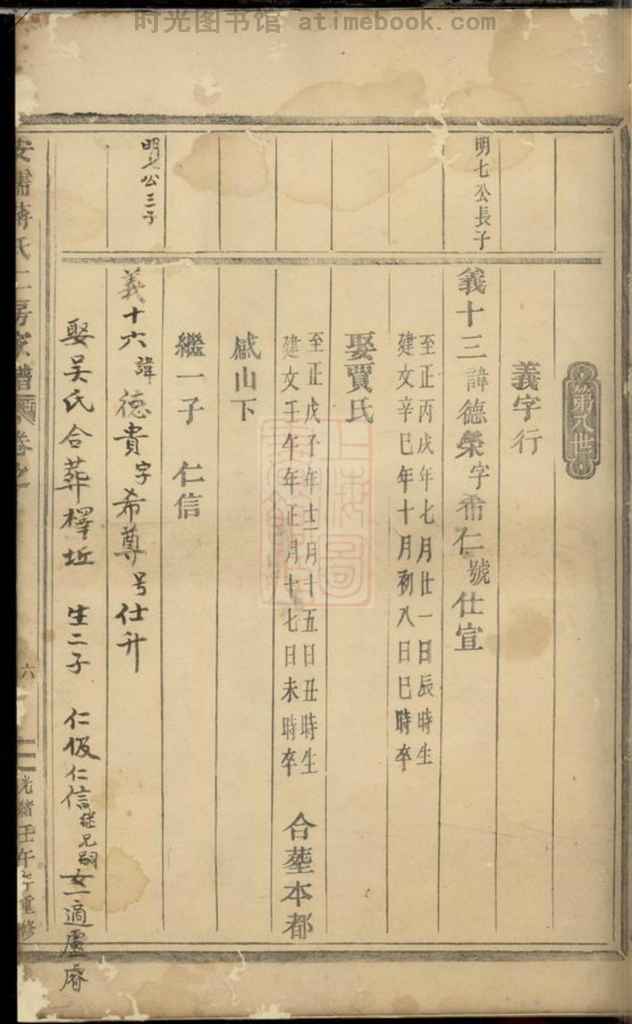 时光图书馆 atimebook.com
第八世
義字行
明七公長子
義十三諱德榮字希仁號仕宣
至正丙戌年七月廿一日辰時生
建文辛巳年十月初八日巳時卒
娶賈氏
至正戊子年十二月十五日丑時生
建文壬午年正月十七日未時卒
合塟本都
感山下
繼一子 仁信
明七公三子
義十六諱德貴字希尊号仕升
娶吴氏合葬檡坵 生二子 仁伋仁信継兄嗣 女一適盧
氏二房家譜 卷
六
光緒壬午年重修